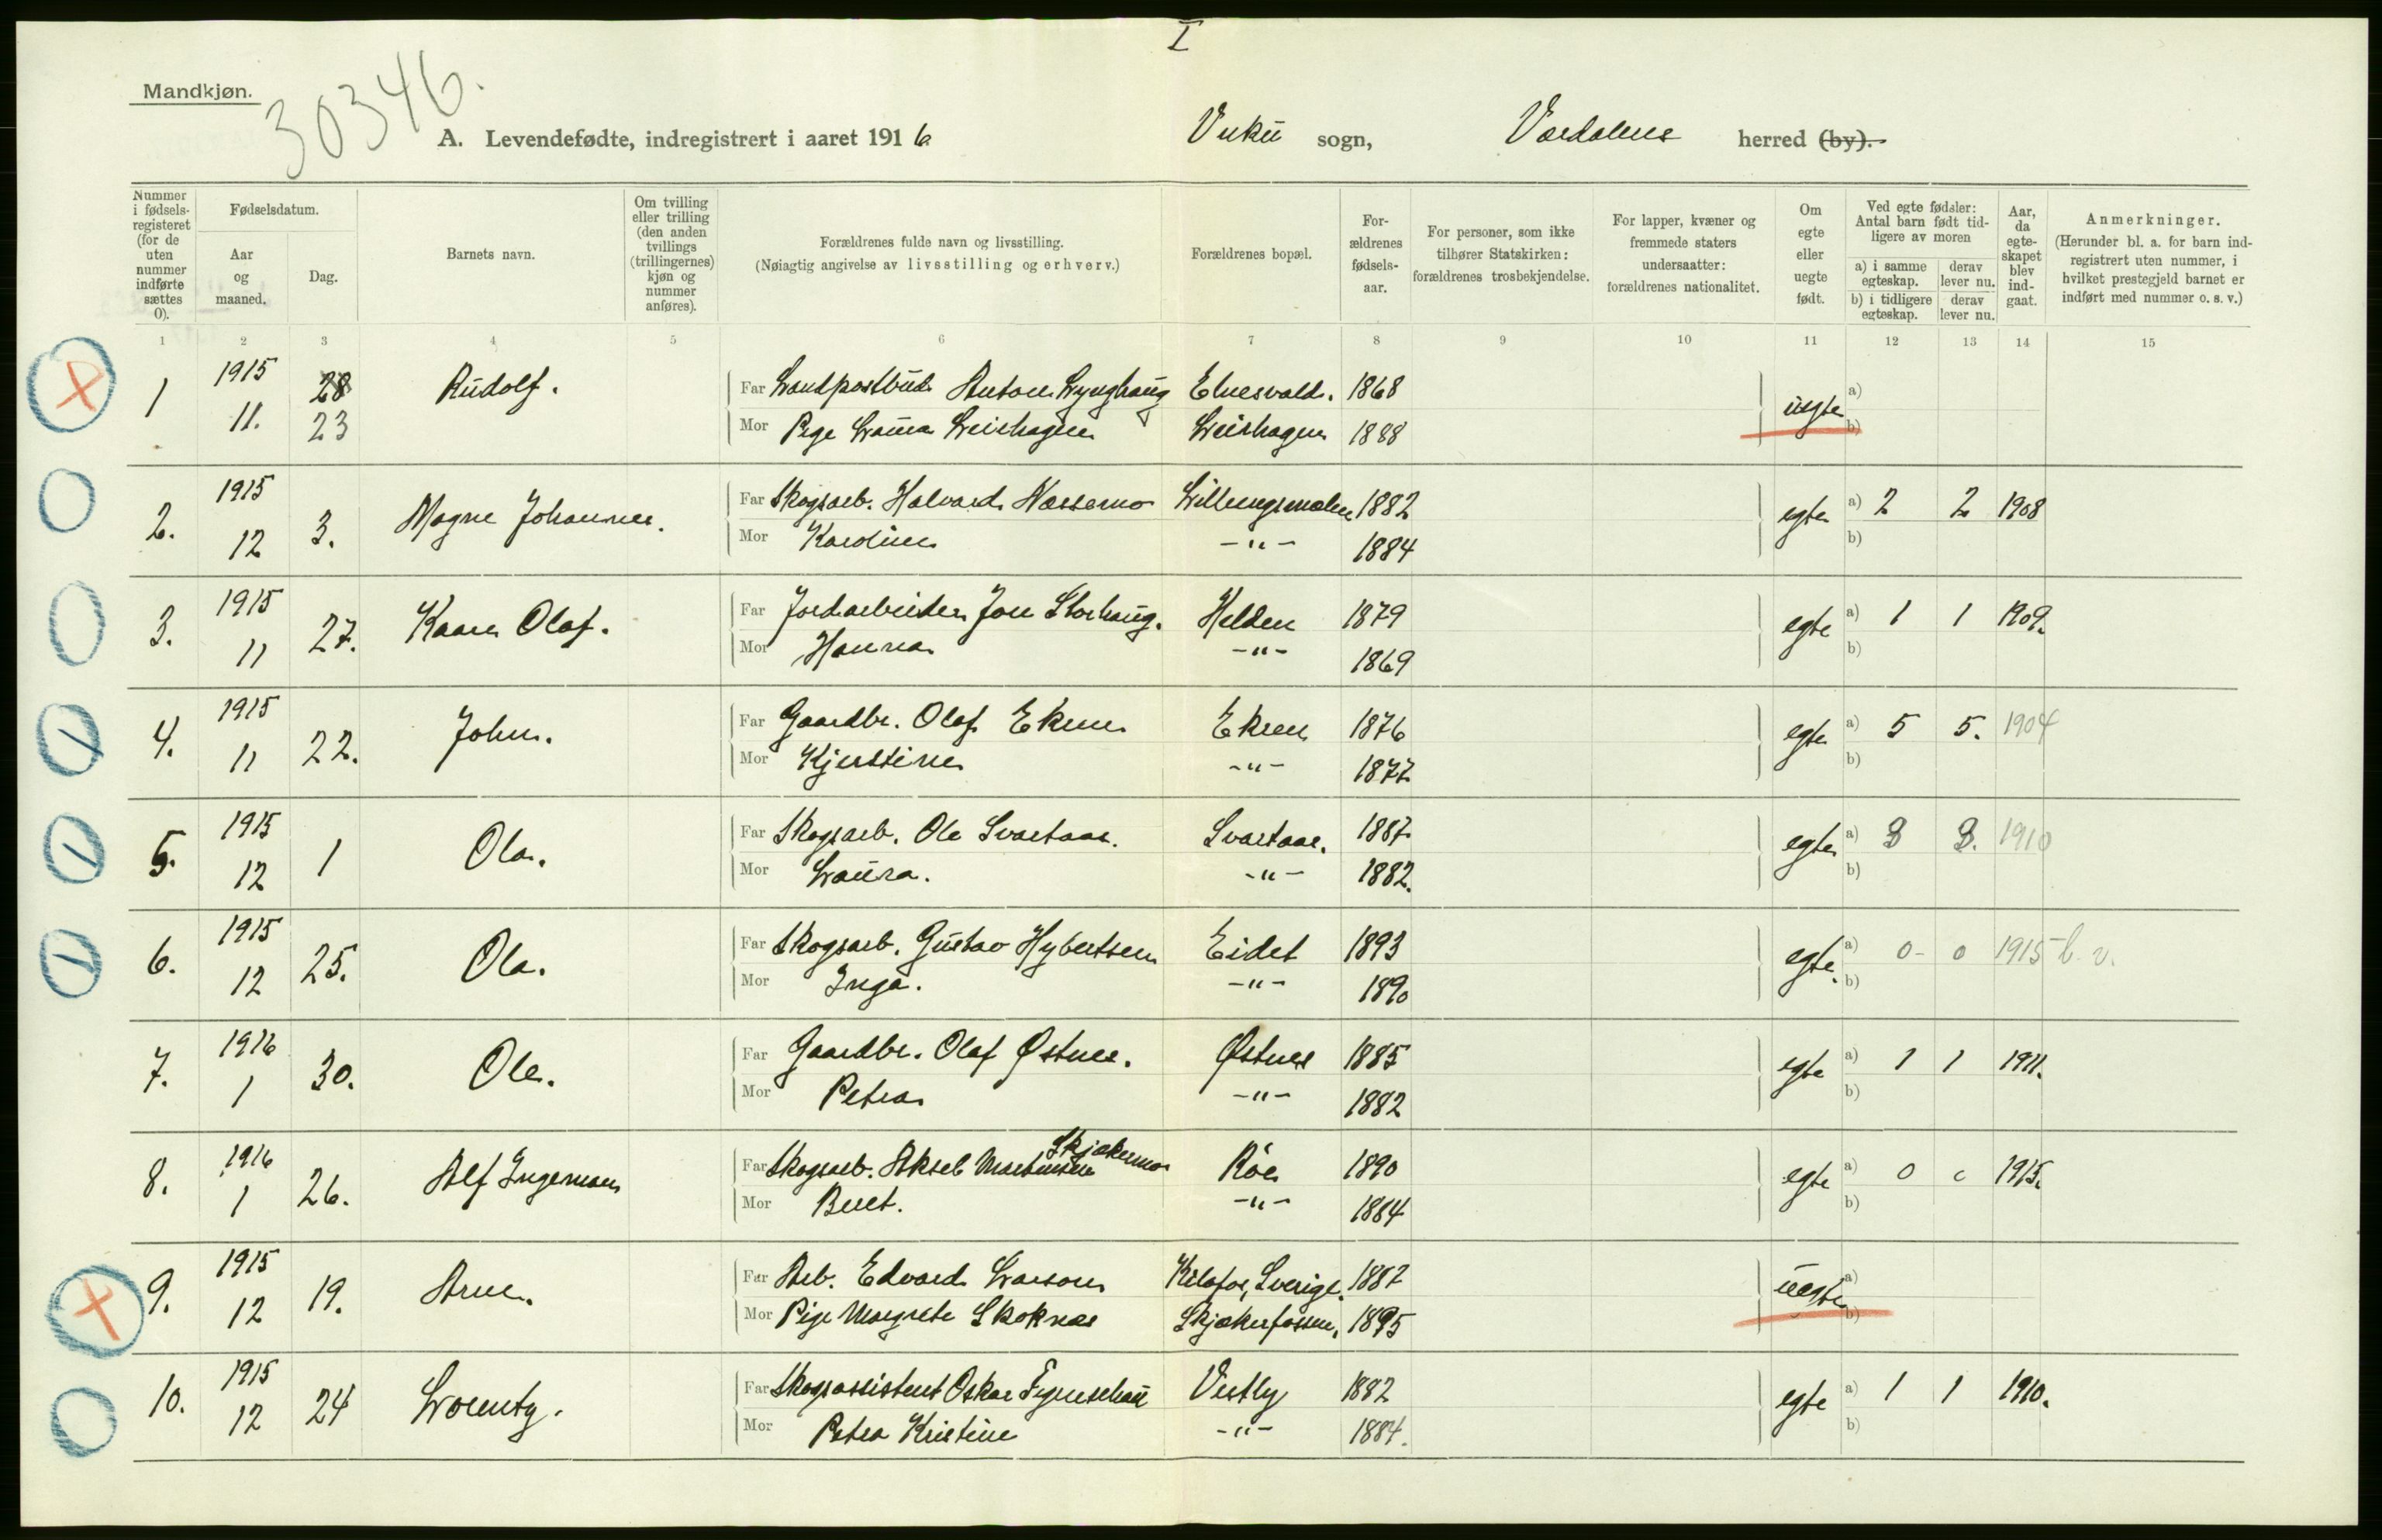 I
Mandkjøn.
30346.
A. Levendefødte, indregistrert i aaret 1916 Vuku sogn, Værdalens herred (by).
Nummer i fødsels-registeret (for de uten nummer indførte sættes 0).
Fødselsdatum.
Aar og maaned.
Dag.
Barnets navn.
Om tvilling eller trilling (den anden tvillings (trillingernes) kjøn og nummer anføres).
Forældrenes fulde navn og livsstilling.
(Nøiagtig angivelse av livsstilling og erhverv.)
Forældrenes bopæl.
For-ældrenes fødsels-aar.
For personer, som ikke tilhører Statskirken: forældrenes trosbekjendelse.
For lapper, kvæner og fremmede staters undersaatter: forældrenes nationalitet.
Om egte eller uegte født.
Ved egte fødsler: Antal barn født tid-ligere av moren
a) i samme egteskap.
derav lever nu.
b) i tidligere egteskap.
derav lever nu.
Aar, da egte-skapet blev ind-gaat.
Anmerkninger.
(Herunder bl. a. for barn ind-registrert uten nummer, i hvilket prestegjeld barnet er indført med nummer o. s. v.)
1 2 3 4 5 6 7 8 9 10 11 12 13 14 15
1 1915 11. 28 23 Rudolf. Far Landpostbud Anton Lynghaug Elnesvald. 1868 uegte a)
Mor Pige Laura Leirhagen Leirhagen 1888 b)
2. 1915 12 3. Magne Johannes. Far Skogsarb. Halvard Næssemo Lillengsmolen 1882 egte a) 2 2 1908
Mor Karoline -"- 1884 b)
3. 1915 11 27. Kaare Olaf. Far Jordarbeider Jon Storhaug. Helden 1879 egte a) 1 1 1909.
Mor Hanna -"- 1869 b)
4. 1915 11 22. John. Far Gaardbr. Olaf Ekren Ekren 1876 egte a) 5 5. 1904
Mor Kjerstine -"- 1877 b)
5. 1915 12 1 Ola. Far Skogsarb. Ole Svartaas. Svartaas. 1887 egte a) 1910
Mor Laura. -"- 1882. b)
6. 1915 12 25. Ola. Far Skogsarb. Gustav Hybertsen Eidet 1893 egte. a) 0- 0 1915 b. v.
Mor Inga. -"- 1890 b)
7. 1916 1 30. Ole. Far Gaardbr. Olaf Østnes. Østnes 1885 egte a) 1 1 1911.
Mor Petra -"- 1882 b)
8. 1916 1 26. Alf Ingeman Far Skogsarb. Aksel Martinsen Skjækermo Røe 1890 egte a) 0 0 1915.
Mor Beret. -"- 1884 b)
9. 1915 12 19. Arne. Far Arb. Edvard Larson Kilafos, Sverige. 1887 uegte a)
Mor Pige Margrete Skoknæs Skjækerfossen. 1895 b)
10. 1915 12 24 Lorentz. Far Skogsassistent Oskar Fignschau Vestby 1882 egte a) 1 1 1910.
Mor Petra Kristine -"- 1884. b)